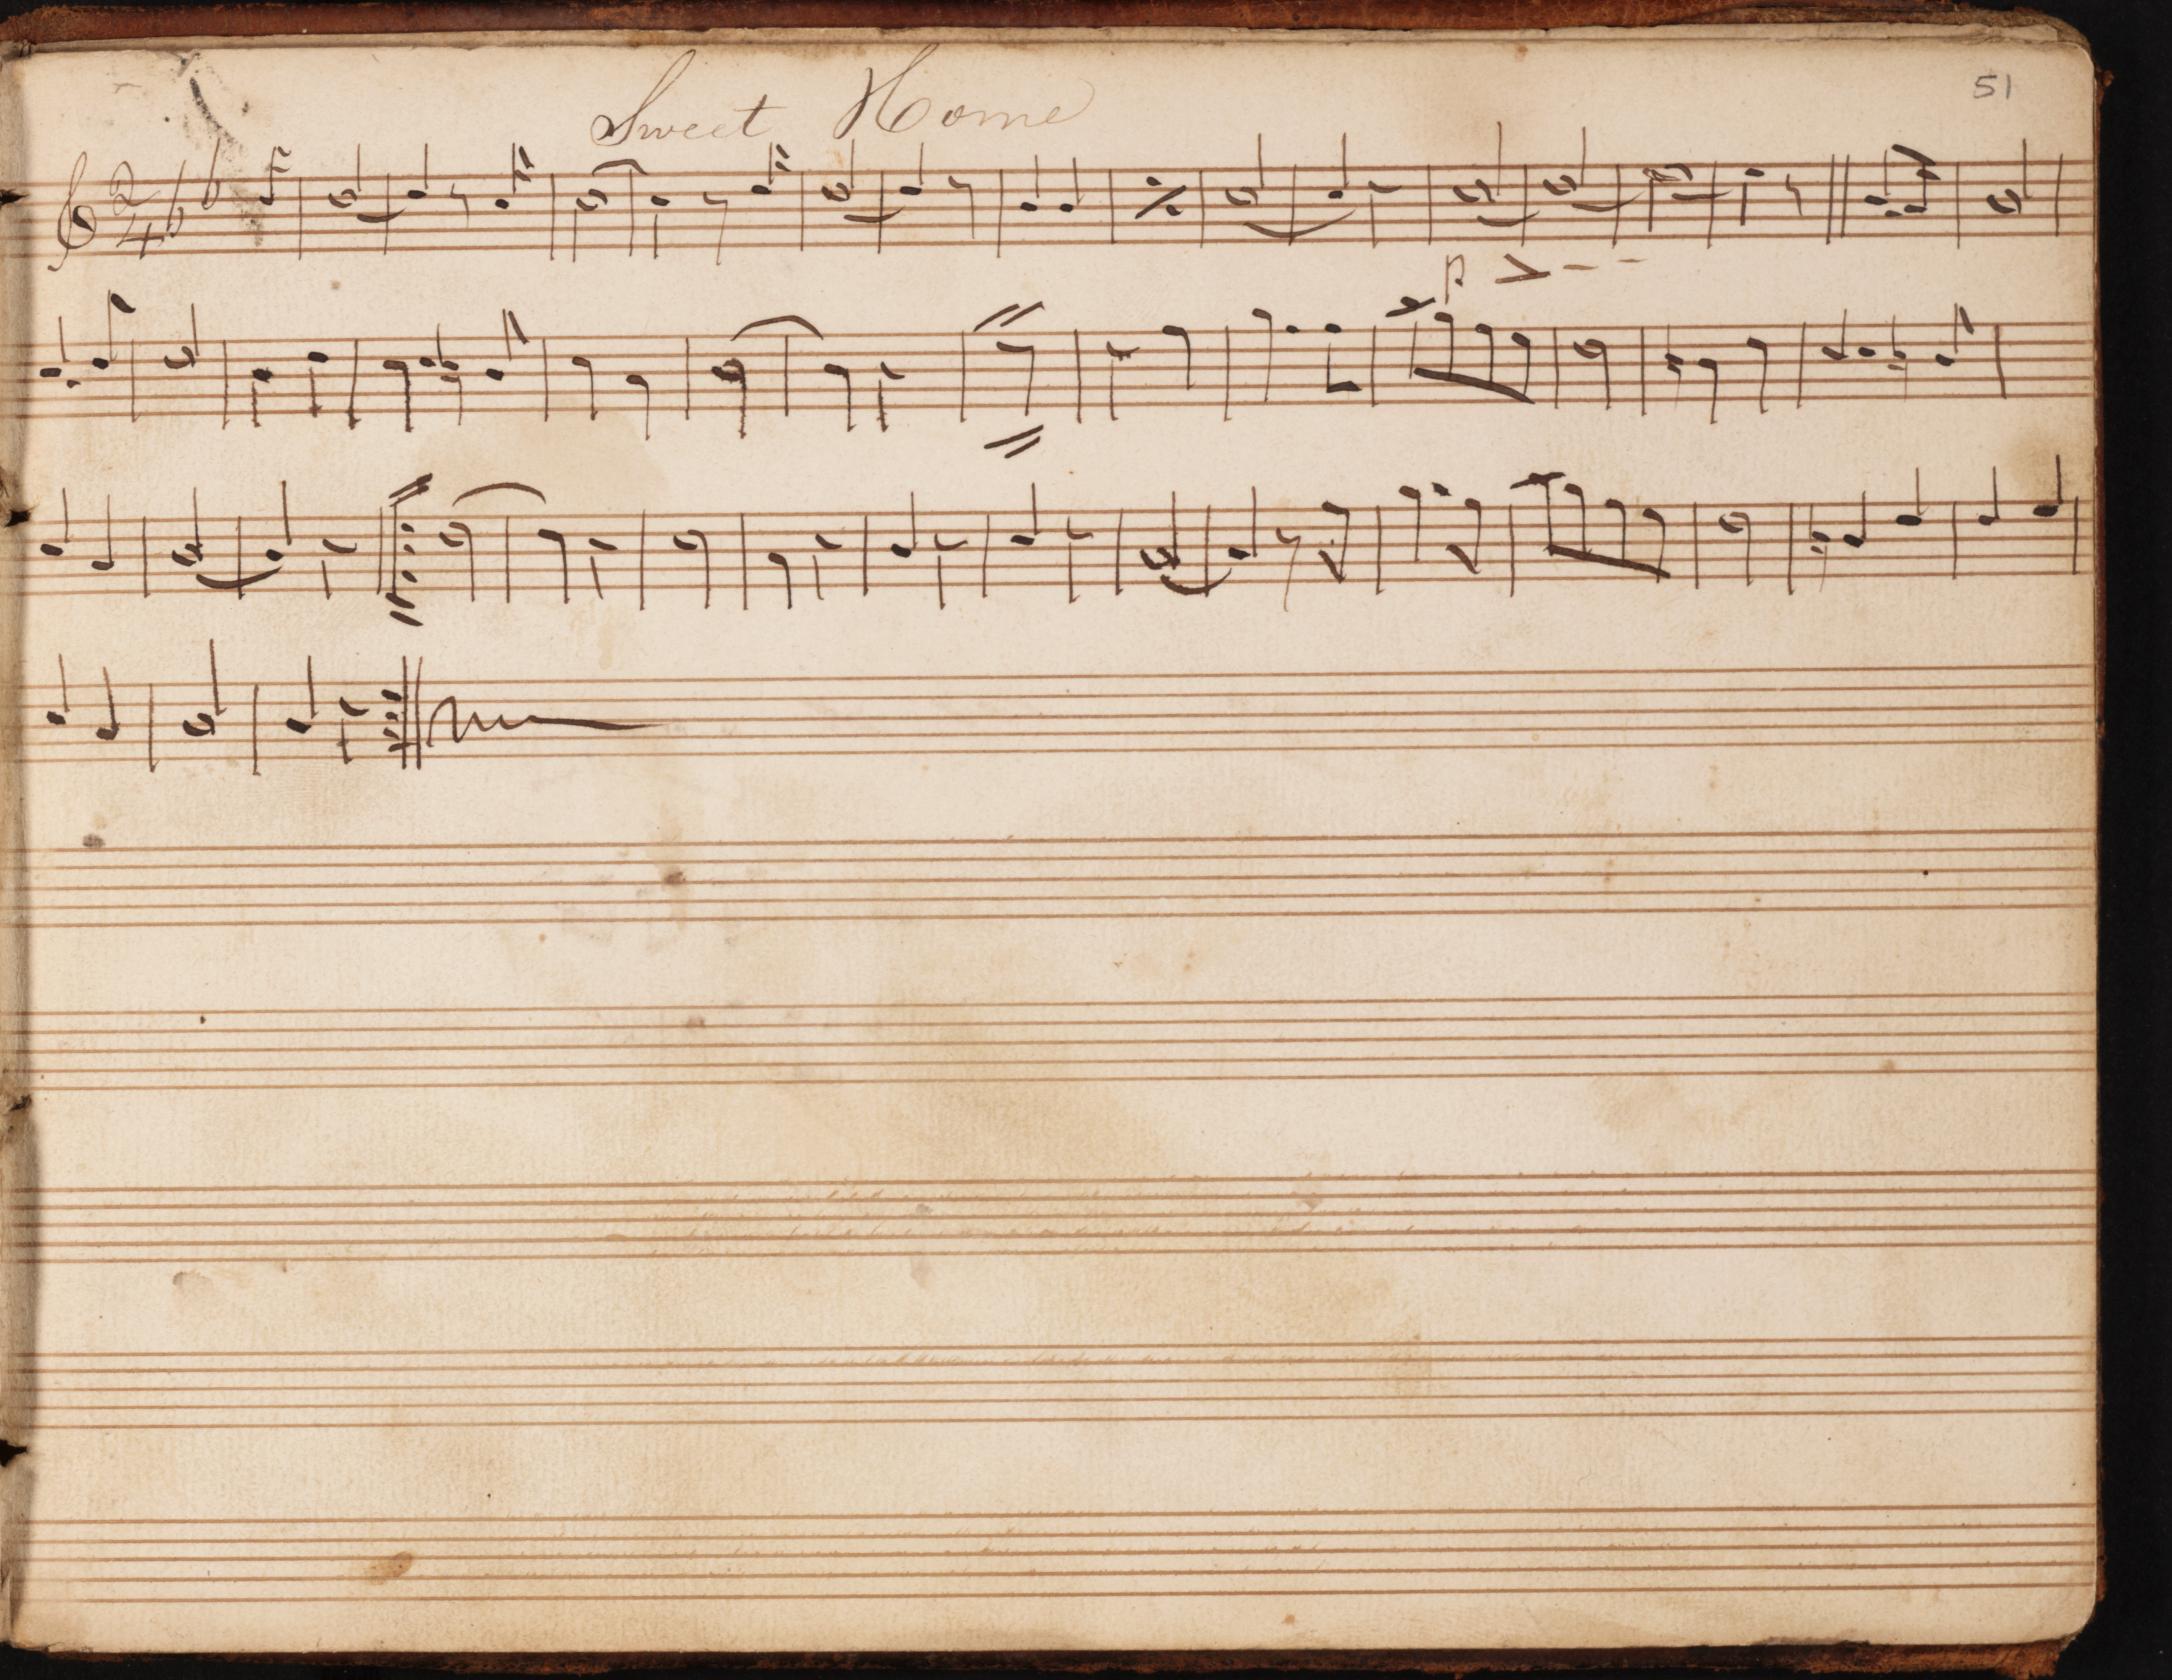 Sweet Home
51
2
4
p